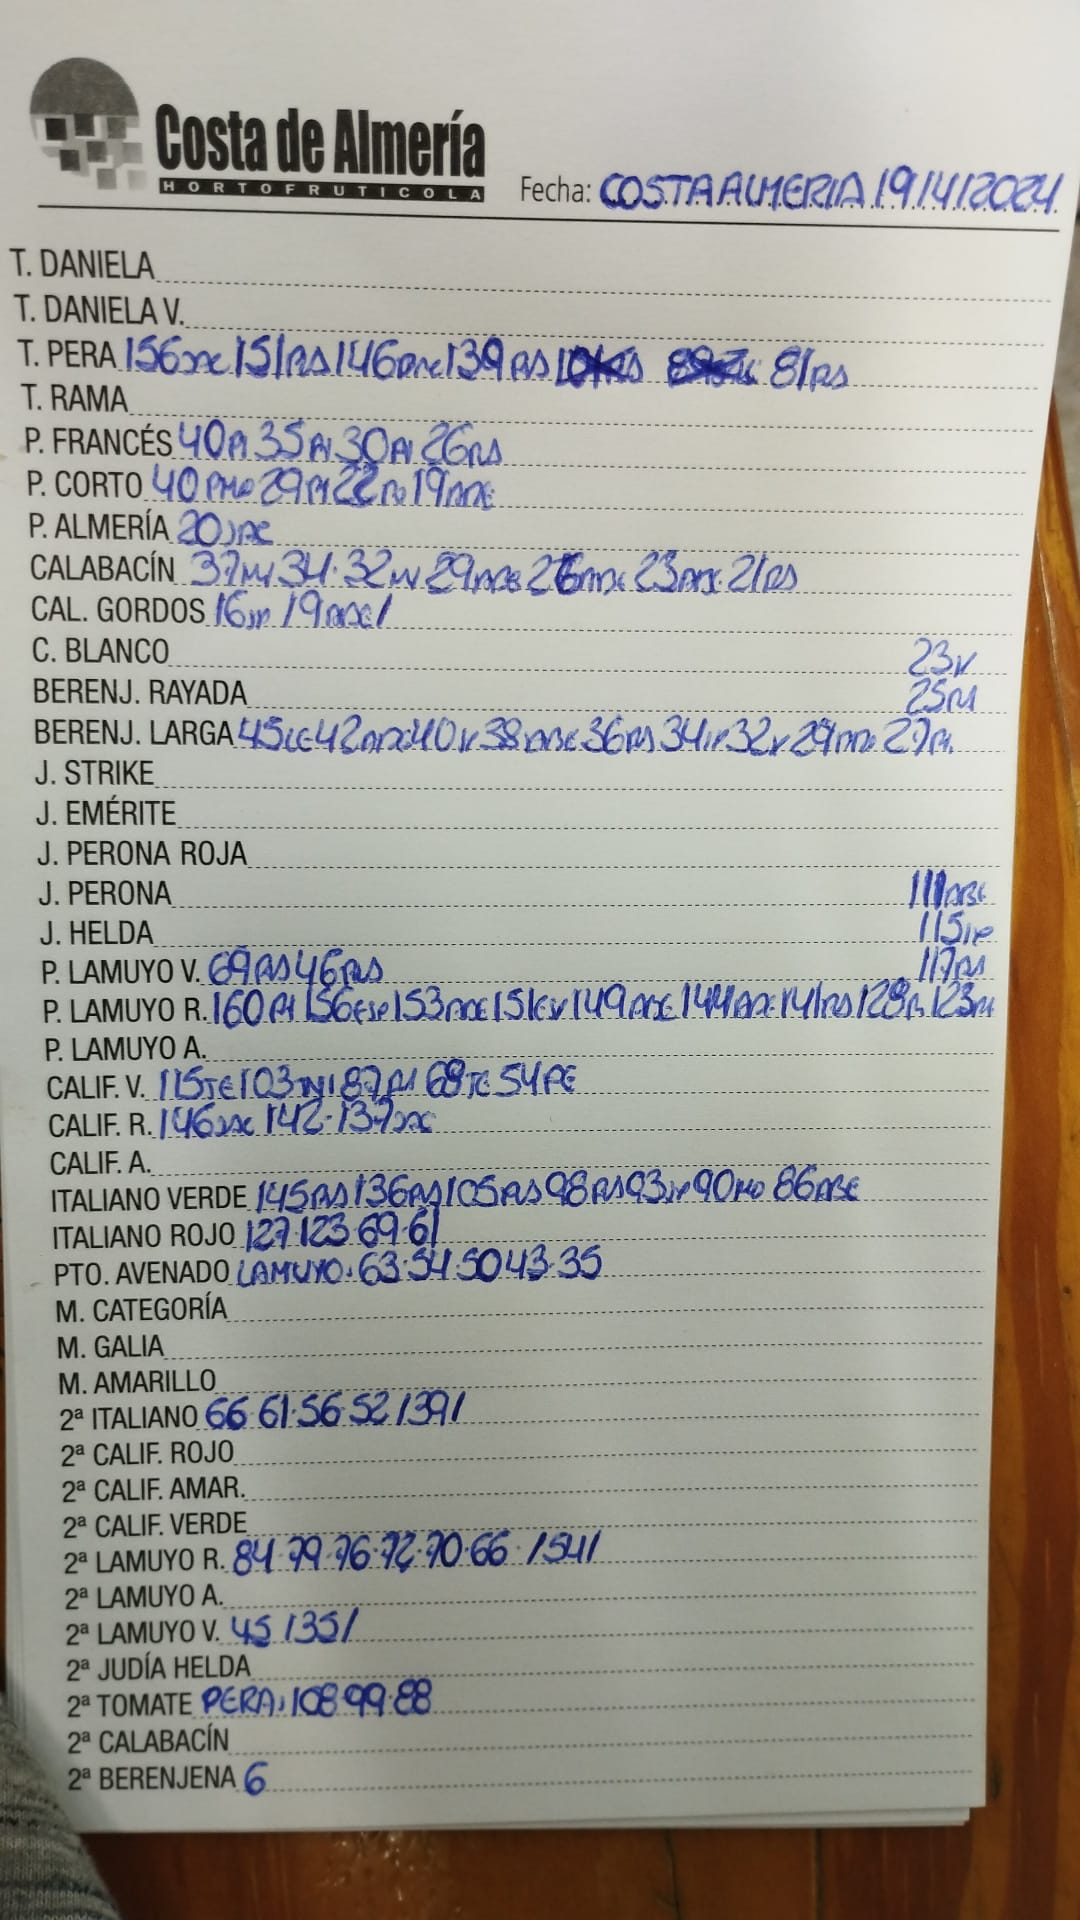 Costa de Almería
HORTOFRUTICOLA
Fecha: COSTA ALMERIA 19/4/2024
T. DANIELA
T. DANIELA V.
T. PERA 156 151RS 146 139RS 81RS
T. RAMA
P. FRANCÉS 40PI 35PI 30PI 26RS
P. CORTO 40 29PI 22 19
P. ALMERÍA 20
CALABACÍN 37 34·32 29 26 23 21RS
CAL. GORDOS 16 /19 /
C. BLANCO 23V
BERENJ. RAYADA 25PI
BERENJ. LARGA 45 42 40V 38 36RS 34 32V 29 27PI
J. STRIKE
J. EMÉRITE
J. PERONA ROJA
J. PERONA 111ABE
J. HELDA 115
P. LAMUYO V. 69RS 46RS 117RS
P. LAMUYO R. 160PI 156 153 151 149 144 141RS 128 123PI
P. LAMUYO A.
CALIF. V. 115TE 103 87PI 68TE 54PE
CALIF. R. 146 142·137
CALIF. A.
ITALIANO VERDE 145RS 136RS 105RS 98RS 93 90 86ABE
ITALIANO ROJO 127·123·69·61
PTO. AVENADO LAMUYO: 63·54·50 43·35
M. CATEGORÍA
M. GALIA
M. AMARILLO
2ª ITALIANO 66·61·56·52 /39/
2ª CALIF. ROJO
2ª CALIF. AMAR.
2ª CALIF. VERDE
2ª LAMUYO R. 84·79·76·72·70·66·/54/
2ª LAMUYO A.
2ª LAMUYO V. 45 /35/
2ª JUDÍA HELDA
2ª TOMATE PERA: 108·99·88
2ª CALABACÍN
2ª BERENJENA 6